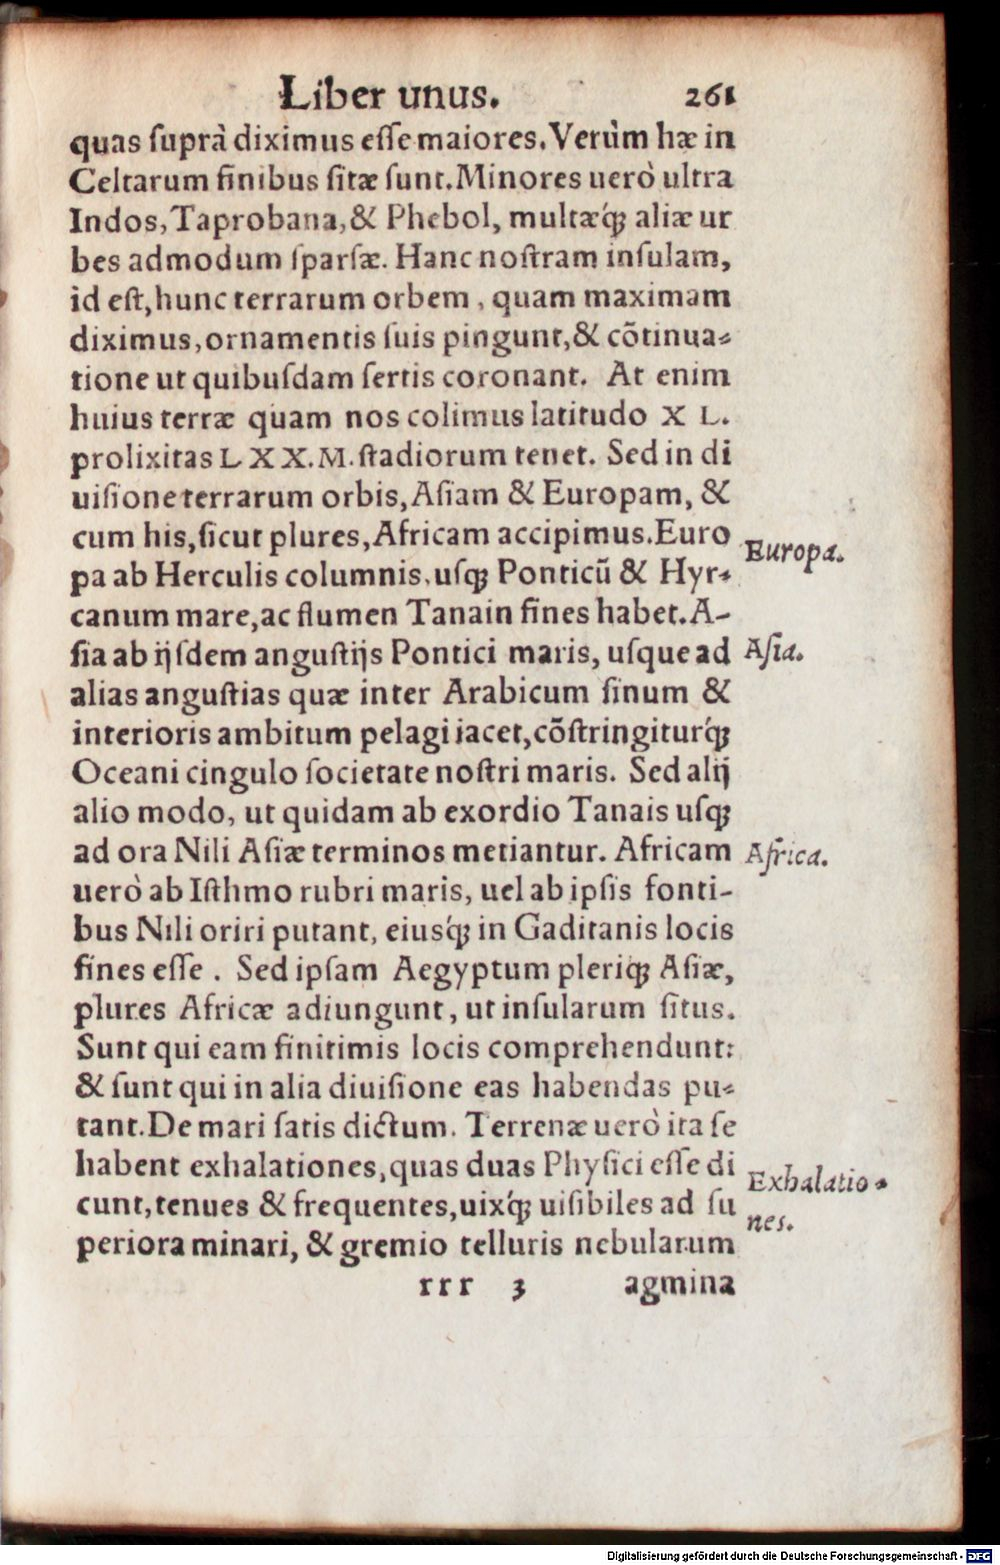 Liber unus. 261
quas suprà diximus esse maiores. Verùm hæ in
Celtarum finibus sitæ sunt. Minores uerò ultra
Indos, Taprobana, & Phebol, multæq́; aliæ ur
bes admodum sparsæ. Hanc nostram insulam,
id est, hunc terrarum orbem, quam maximam
diximus, ornamentis suis pingunt, & cõtinua-
tione ut quibusdam sertis coronant. At enim
huius terræ quam nos colimus latitudo X L.
prolixitas L X X. M. stadiorum tenet. Sed in di
uisione terrarum orbis, Asiam & Europam, &
cum his, sicut plures, Africam accipimus. Euro
Europa.
pa ab Herculis columnis, usq; Ponticũ & Hyr-
canum mare, ac flumen Tanain fines habet. A-
sia ab ijsdem angustijs Pontici maris, usque ad
Asia.
alias angustias quæ inter Arabicum sinum &
interioris ambitum pelagi iacet, cõstringiturq́;
Oceani cingulo societate nostri maris. Sed alij
alio modo, ut quidam ab exordio Tanais usq;
ad ora Nili Asiæ terminos metiantur. Africam
Africa.
uerò ab Isthmo rubri maris, uel ab ipsis fonti-
bus Nili oriri putant, eiusq́; in Gaditanis locis
fines esse. Sed ipsam Aegyptum pleriq; Asiæ,
plures Africæ adiungunt, ut insularum situs.
Sunt qui eam finitimis locis comprehendunt:
& sunt qui in alia diuisione eas habendas pu-
tant. De mari satis dictum. Terrenæ uerò ita se
habent exhalationes, quas duas Physici esse di
Exhalatio-
cunt, tenues & frequentes, uixq́; uisibiles ad su
nes.
periora minari, & gremio telluris nebularum
rrr 3 agmina
Digitalisierung gefördert durch die Deutsche Forschungsgemeinschaft - DFG